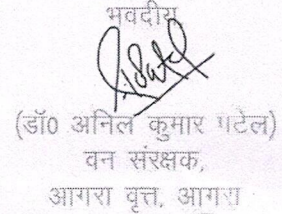 भवदीय
(डॉ0 अनिल कुमार पटेल)
वन संरक्षक,
आगरा वृत्त, आगरा